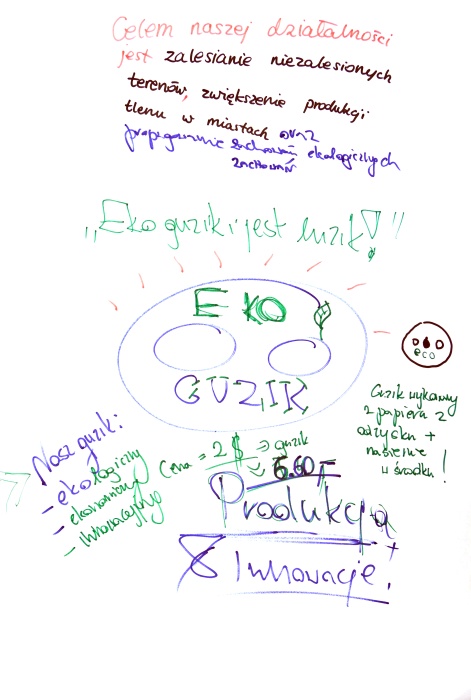 Celem naszej działalności
jest zalesianie niezalesionych
terenów, zwiększenie produkcji
tlenu w miastach oraz
propagowanie zachowań ekologicznych
zachowań
„Eko guzik i jest luzik!"
EKO
GUZIK
eco
Guzik wykonany
z papieru z
odzysku +
nasienie
w środku!
Nasz guzik:
- ekologiczny
- ekonomiczny
- innowacyjny
Cena = 2 $ => guzik
6.60
Produkcja
+
Innowacje.